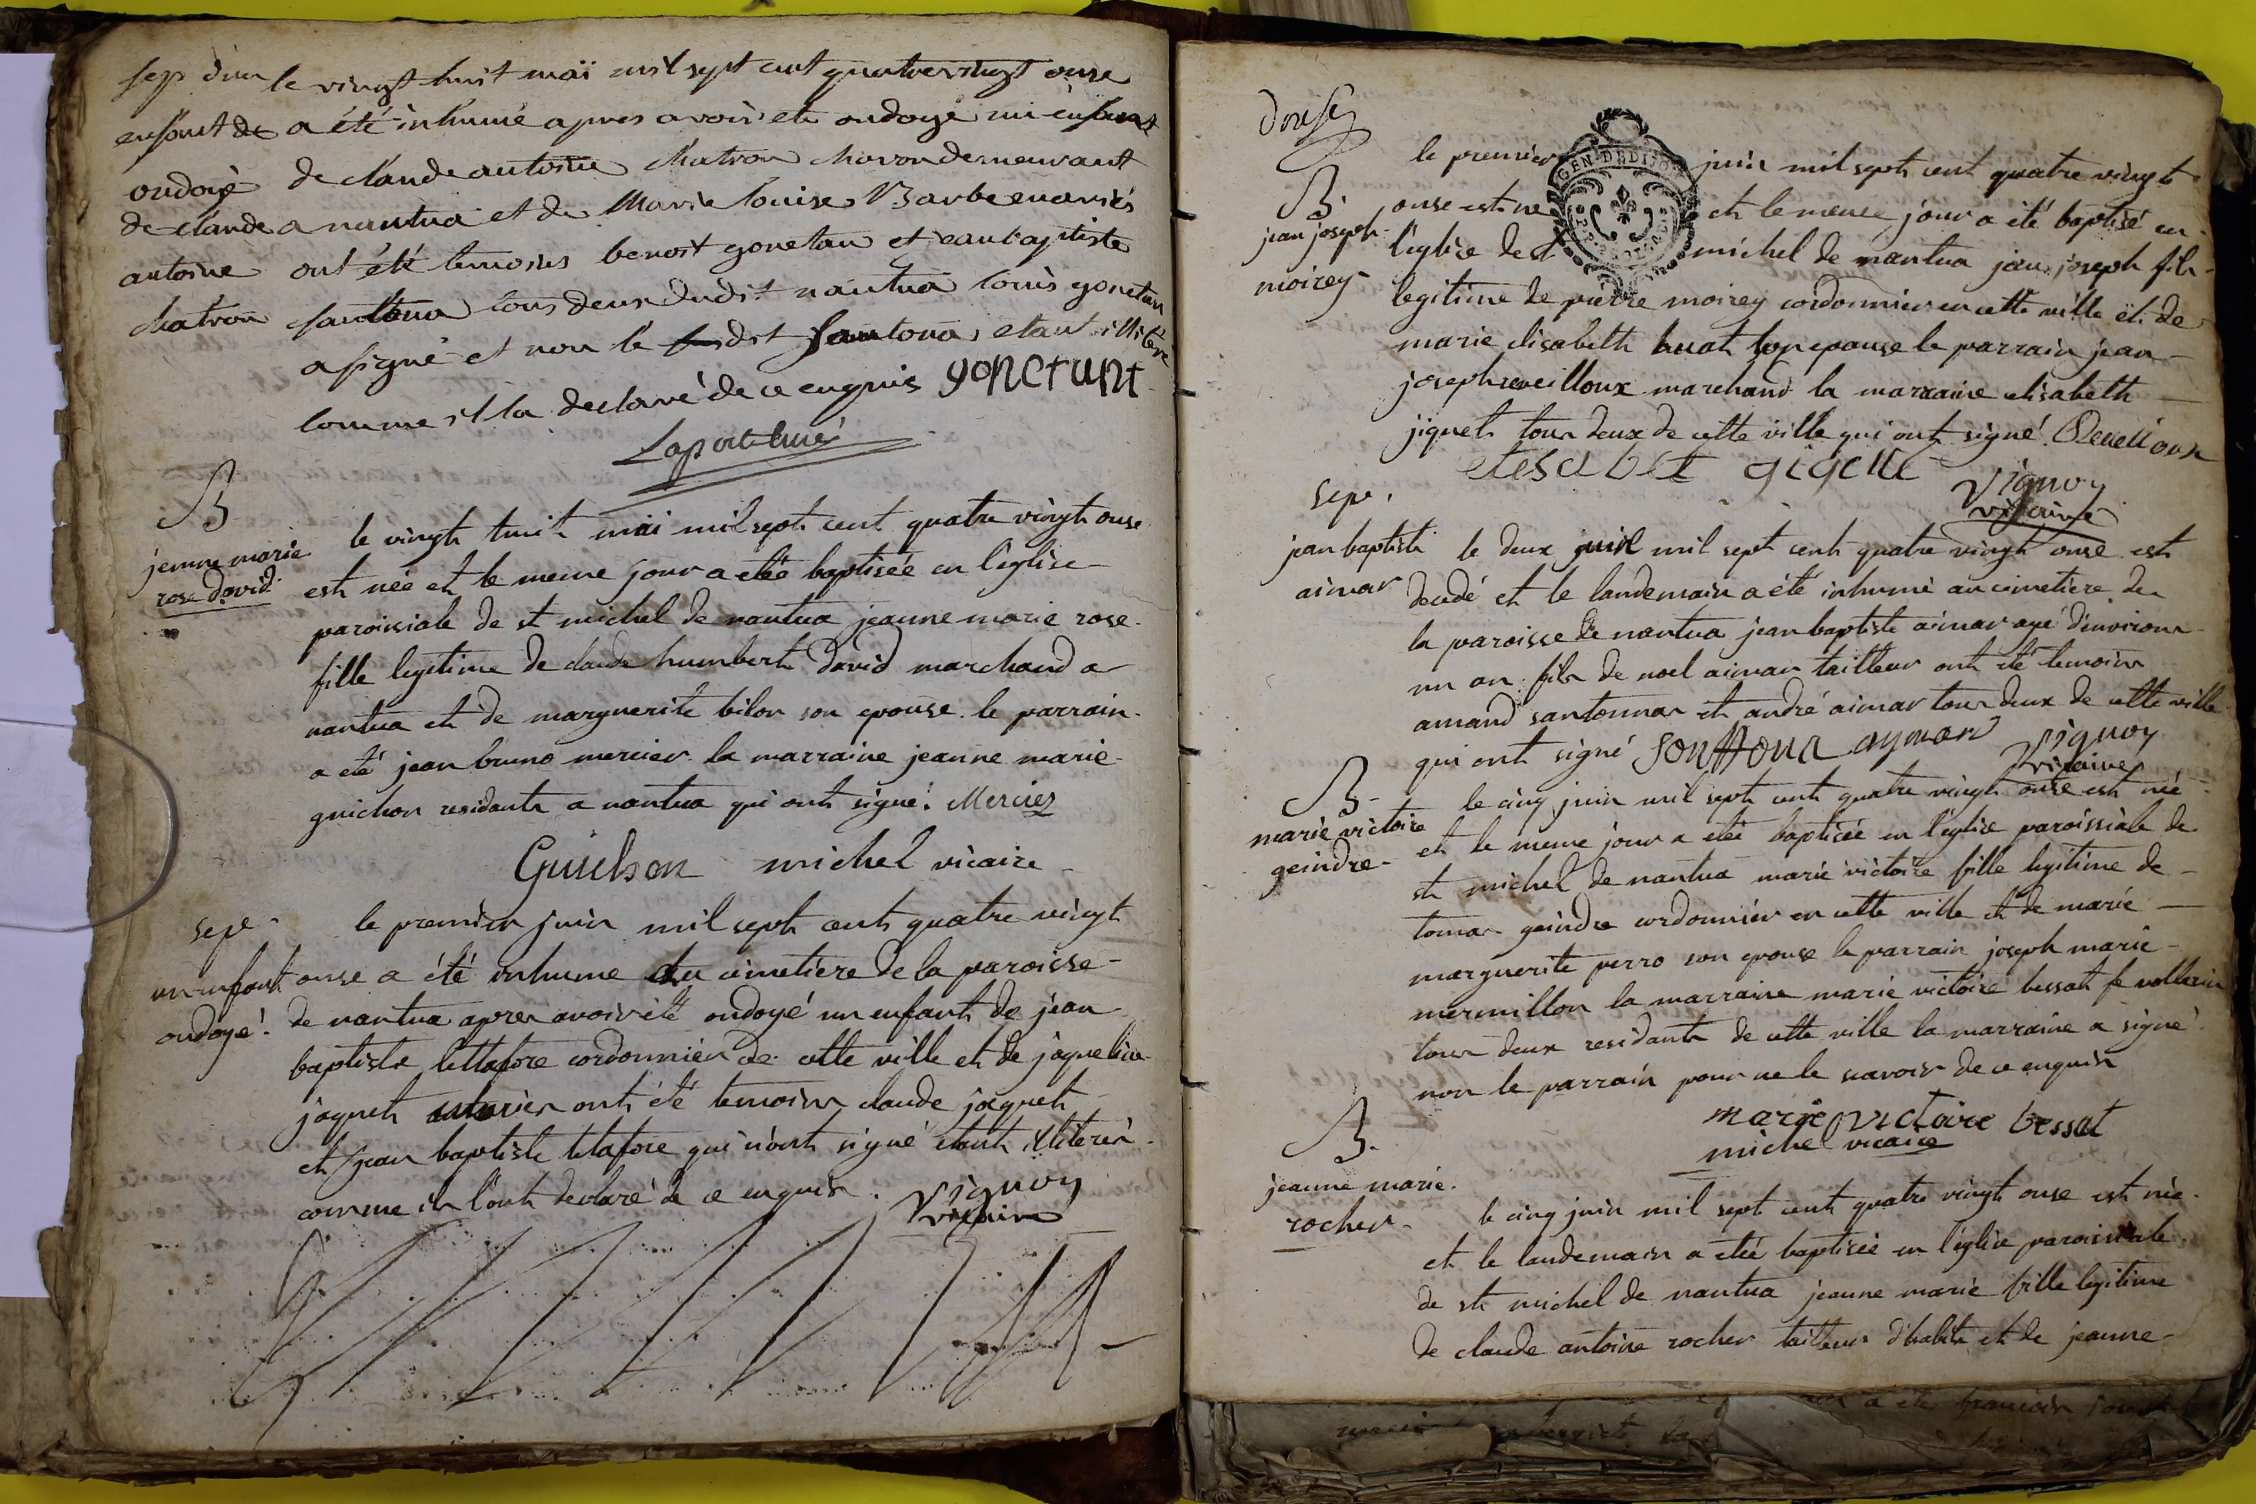 sep d'un
enfant de
ondoyé
de claude
antoine
chatron
le vingt huit maï mil sept cent quatrevingt onse
a été inhumé apres avoir eté ondoyé un enfant
de claude antoine chatron charon demeurant
a nantua et de Marie Louise Barbe mariés
ont été temoins benoit gonetan et jean baptiste
santona tous deux dudit nantua louis gonetan
a signé et non le dit santona etant illitere
comme il l'a declaré de ce enquis gonctant
Laporte curé
B
jeanne marie
rose david
le vingt huit mai mil sept cent quatre vingt onse
est née et le meme jour a etée baptisée en l'eglise
paroissiale de st michel de nantua jeanne marie rose
fille legitime de claude humbert david marchand a
nantua et de marguerite bilon son epouse le parrain
a eté jean bruno mercier la marraine jeanne marie
guichon residants a nantua qui ont signé. Mercier
Guichon michel vicaire
sepe
un enfant
ondoyé
le premier juin mil sept cent quatre vingt
onse a été inhume au cimetiere de la paroisse
de nantua apres avoir été ondoyé un enfant de jean
baptiste lettafore cordonnier de cette ville et de jaqueline
jaquet mariés ont été temoins claude jaquet
et jean baptiste letafore qui n'ont signé etant illiterés
comme ils l'ont declaré de ce enquis. Vignoy
vicaire
Douse
B
jean joseph
moirey
le premier juin mil sept cent quatre vingt
onse est né et le meme jour a été baptisé en
l'eglise de st michel de nantua jean joseph fils
legitime de pierre moirey cordonnier en cette ville et de
marie elisabeth huat son epouse le parrain jean
joseph reveilloux marchand la marraine elisabeth
jiquet tous deux de cette ville qui ont signé. Reveilloux
elesabet gigette
Vignoy
vicaire
GEN. DE DIJON
sepe.
jean baptiste
aimar
le deux juin mil sept cent quatre vingt onse est
decedé et le landemain a été inhumé au cimetiere de
la paroisse de nantua jean baptiste aimar agé d'environ
un an fils de noel aimar tailleur ont été temoins
amand santonnar et andré aimar tous deux de cette ville
qui ont signé Sonttona aymard Vignoy
vicaire
B
marie victoire
geindre
le cinq juin mil sept cent quatre vingt onse est née
et le meme jour a etée baptisée en l'eglise paroissiale de
st michel de nantua marie victoire fille legitime de
tomas geindre cordonnier en cette ville et de marie
marguerite perro son epouse le parrain joseph marie
mermillon la marraine marie victoire bessat fe vollerin
tous deux residants de cette ville la marraine a signé
non le parrain pour ne le scavoir de ce enquis
marie victoire bessat
michel vicaire
B.
jeanne marie
rocher
le cinq juin mil sept cent quatre vingt onse est née
et le landemain a etée baptisée en l'eglise paroissiale
de st michel de nantua jeanne marie fille legitime
de claude antoine rocher tailleur d'habits et de jeanne